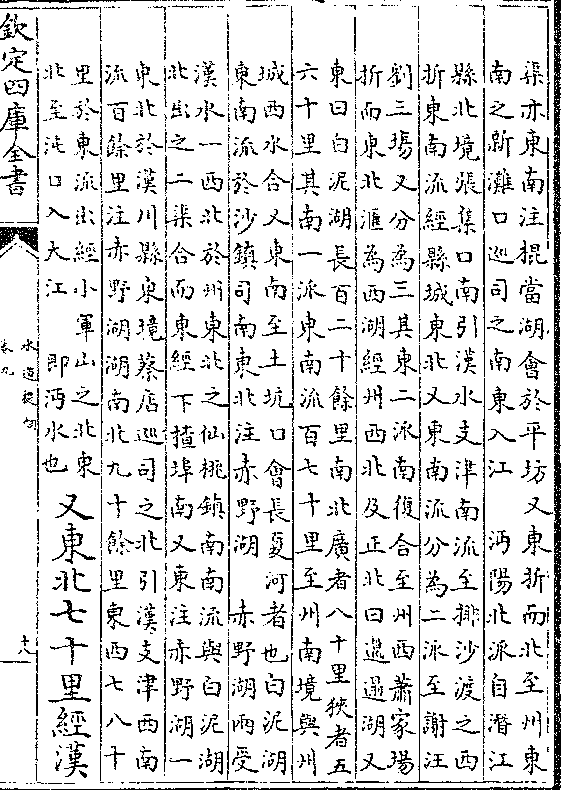 渠亦東南注棍當湖會於平坊又東折而北至州東
南之新灘口巡司之南東入江　沔陽北派自潛江
縣北境張集口南引漢水支津南流至排沙渡之西
折東南流經縣城東北又東南流分為二派至謝汪
劉三場又分為三其東二派南復合至州西蕭家場
折而東北滙為西湖經州西北及正北曰邋遢湖又
東曰白泥湖長百二十餘里南北廣者八十里狹者五
六十里其南一派東南流百七十里至州南境與州
城西水合又東南至土坑口會長夏河者也白泥湖
東南流於沙鎮司南東北注赤野湖　赤野湖兩受
漢水一西北於州東北之仙桃鎮南南流與白泥湖
北出之二渠合而東經下揸埠南又東注赤野湖一
東北於漢川縣東境蔡店巡司之北引漢支津西南
流百餘里注赤野湖湖南北九十餘里東西七八十
里於東流出經小軍山之北東
北至沌口入大江　即沔水也
又東北七十里經漢
欽定四庫全書
水道提綱
卷九
十八